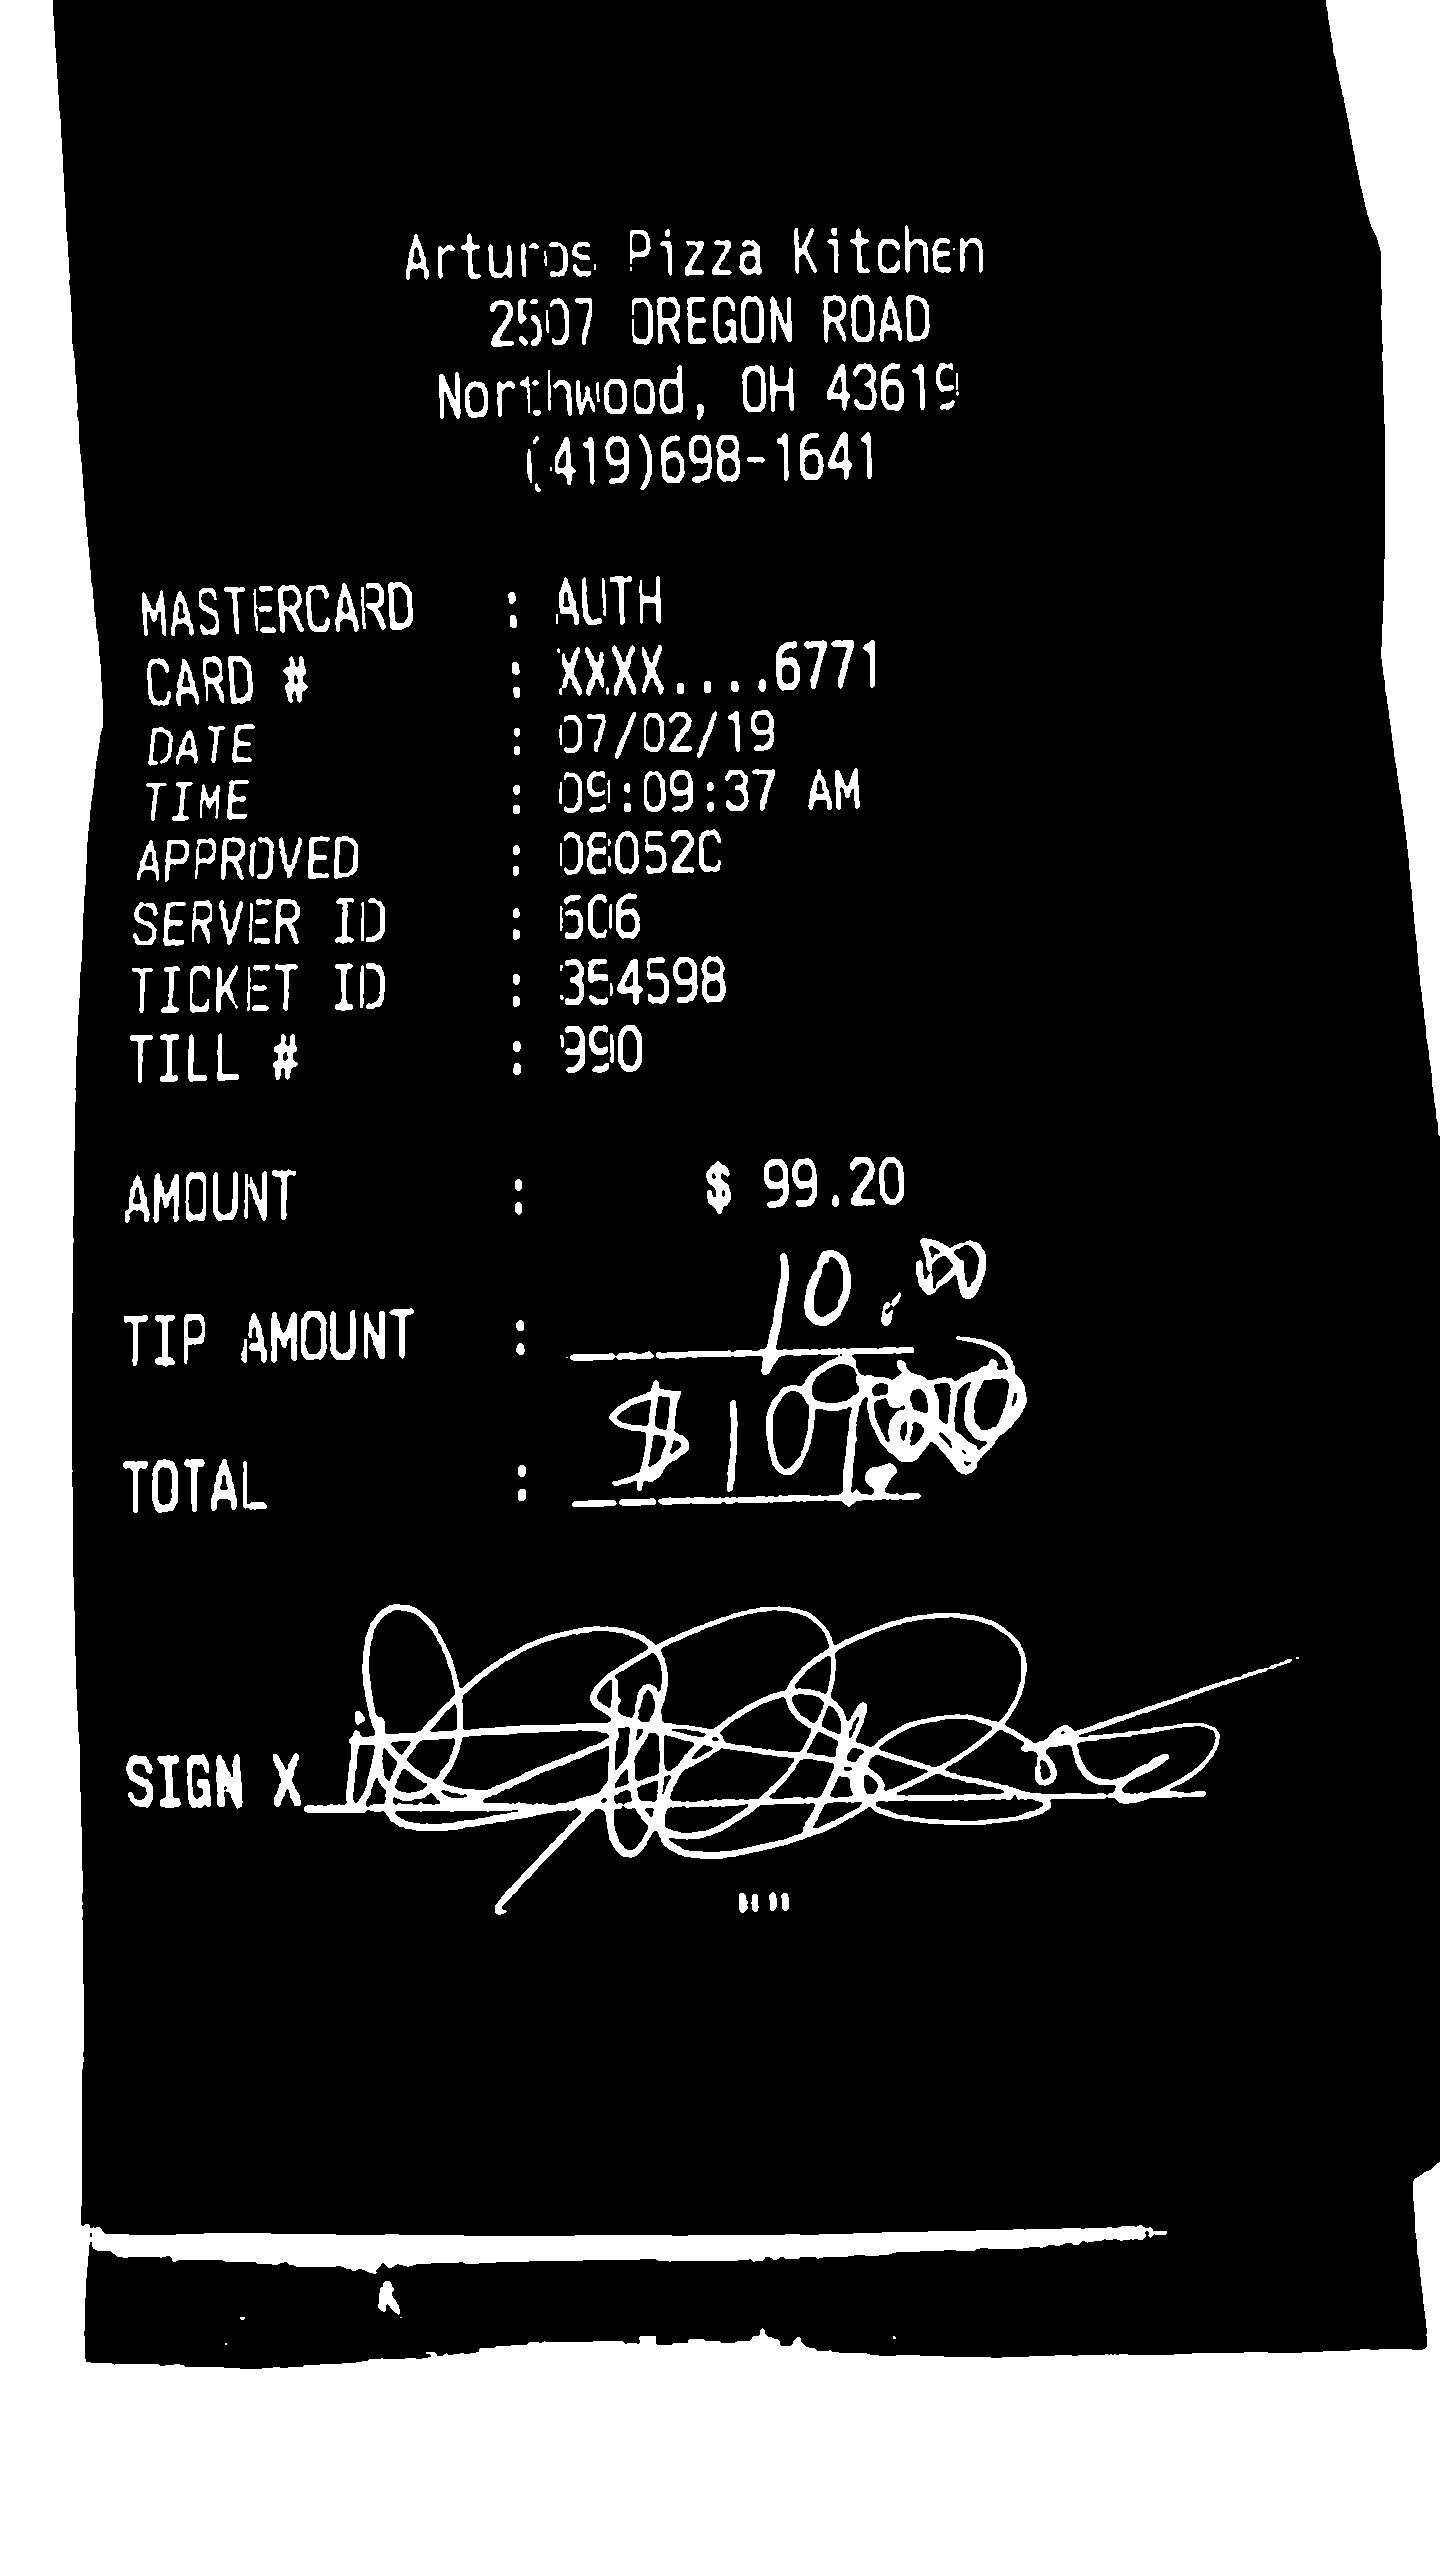 Arturos Pizza Kitchen
2507 OREGON ROAD
Northwood, OH 43619
(419)698-1641
MASTERCARD : AUTH
CARD # : XXXX....6771
DATE : 07/02/19
TIME : 09:09:37 AM
APPROVED : 08052C
SERVER ID : 606
TICKET ID : 354598
TILL # : 990
AMOUNT : $ 99.20
TIP AMOUNT : 10.00
TOTAL : $109.20
SIGN X